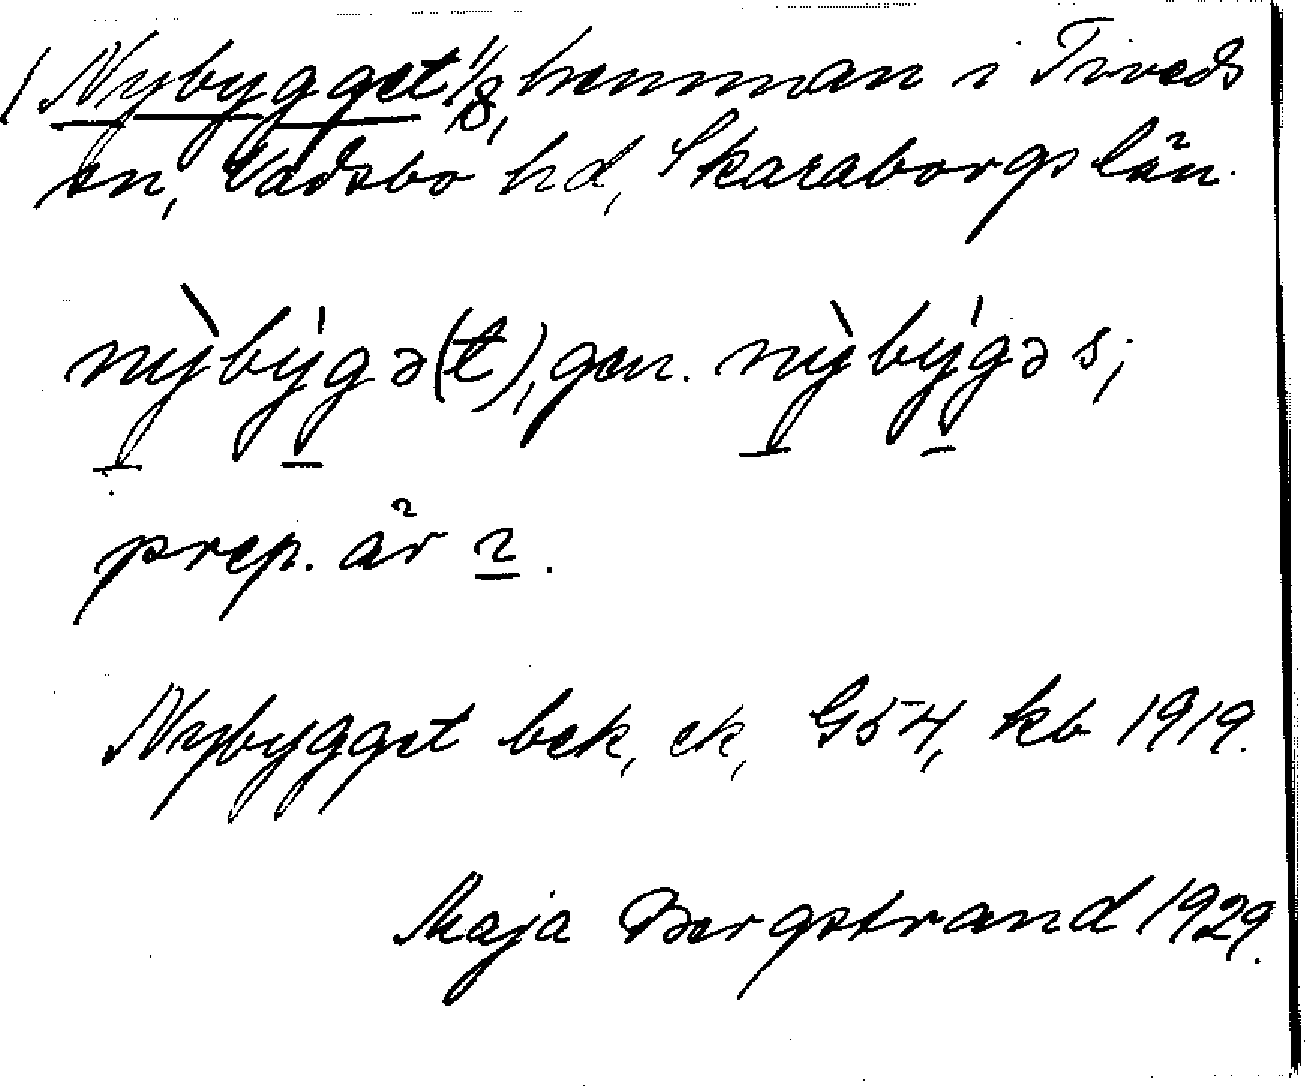 Nybygget 1/8, hemman i Tiveds
sn, Vadsbo hd, Skaraborgs län.
nỳbýgə(t), gen. nỳbýgə s;
prep. är ı.
Nybygget bek, ek, G54, kb 1919.
Maja Bergstrand 1929.